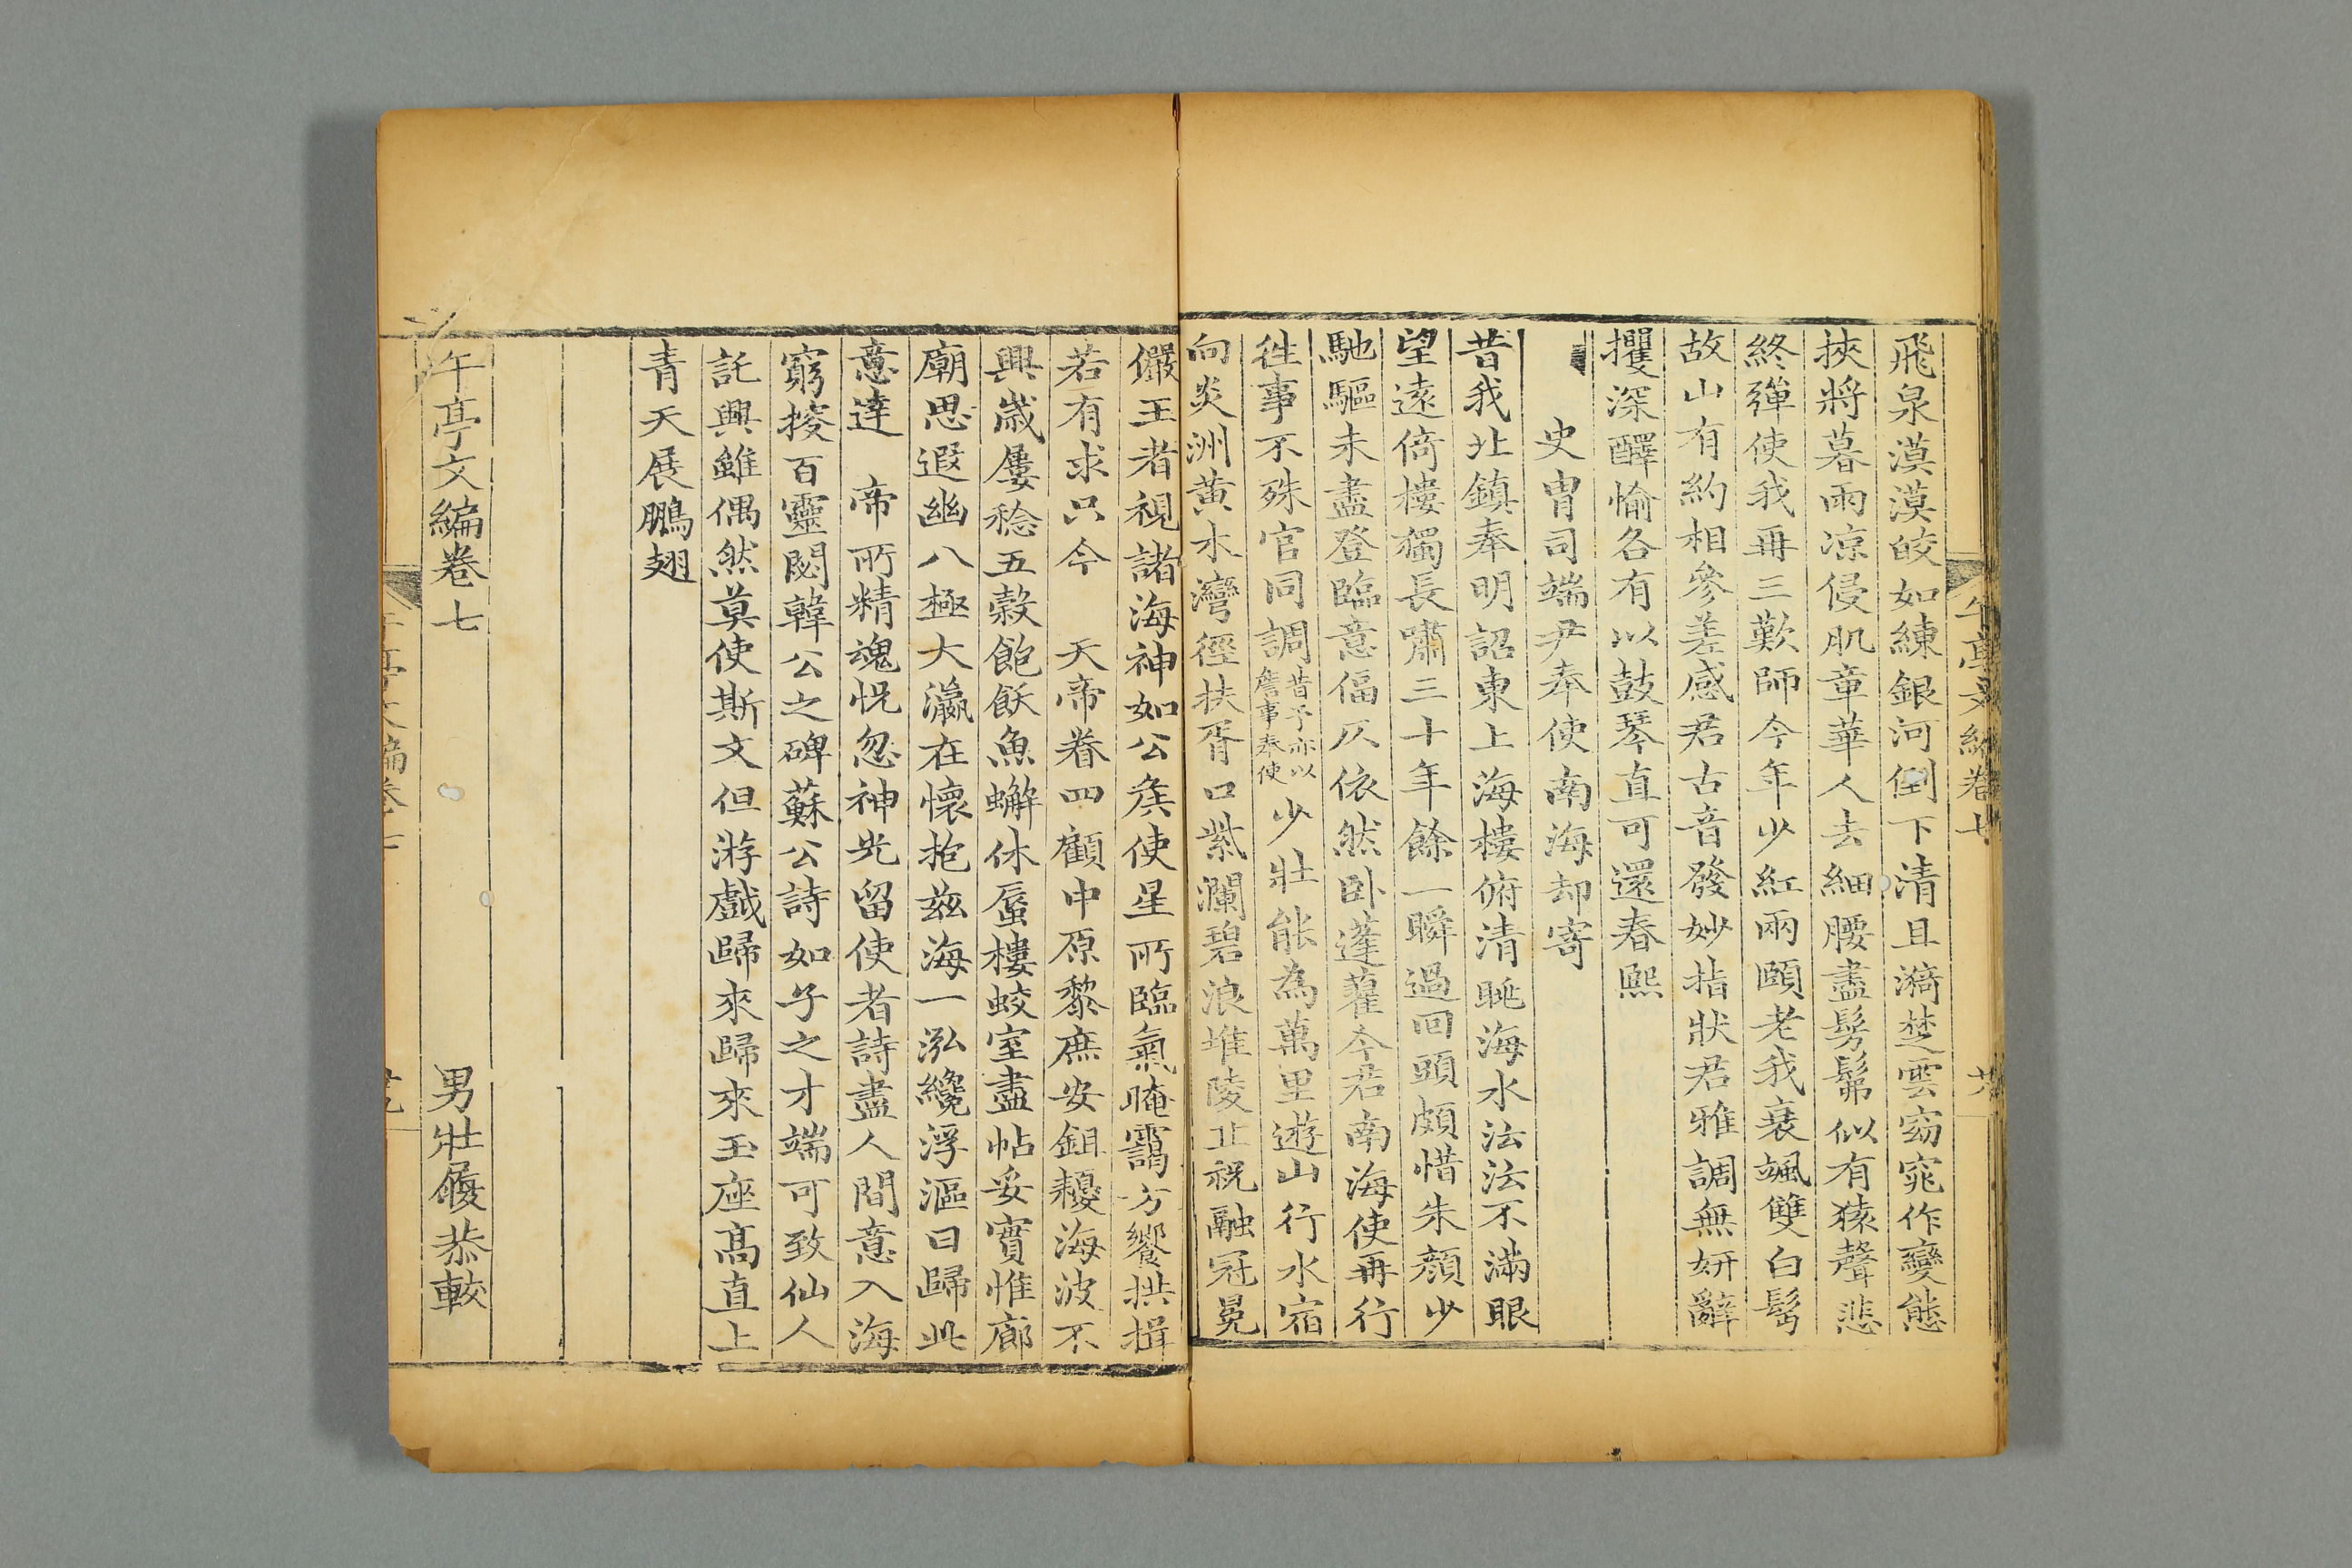 飛泉漠漠皎如練銀河倒下清且漪楚雲窈窕作變態
挾將暮雨凉侵肌章華人去細腰盡髣髴似有猿聲悲
終彈使我再三歎師今年少紅兩頤老我衰颯雙白髩
故山有約相參差感君古音發妙指狀君雅調無妍辭
攫深醳愉各有以鼓琴直可還春熙
史胄司端尹奉使南海却寄
昔我北鎮奉明詔東上海樓俯清眺海水浤浤不滿眼
望遠倚樓獨長嘯三十年餘一瞬過回頭頗惜朱顏少
馳驅未盡登臨意偪仄依然卧蓬藋今君南海使再行
徃事不殊官同調昔予亦以詹事奉使少壯能為萬里遊山行水宿
向炎洲黄水灣徑扶胥口紫瀾碧浪堆陵丘祝融冠冕
儼王者視諸海神如公矦使星所臨氣晻靄方饗拱揖
若有求只今 天帝眷四顧中原黎庶安鉏耰海波不
興歲屢稔五穀飽飫魚蠏休蜃樓蛟室盡帖妥實惟廊
廟思遐幽八極大瀛在懷抱茲海一泓纔浮漚曰歸此
意達 帝所精魂怳忽神光留使者詩盡人間意入海
窮搜百靈閟韓公之碑蘇公詩如子之才端可致仙人
託興雖偶然莫使斯文但游戲歸來歸來玉座高直上
青天展鵬翅
午亭文編卷七
男壯履恭較
午亭文編卷七